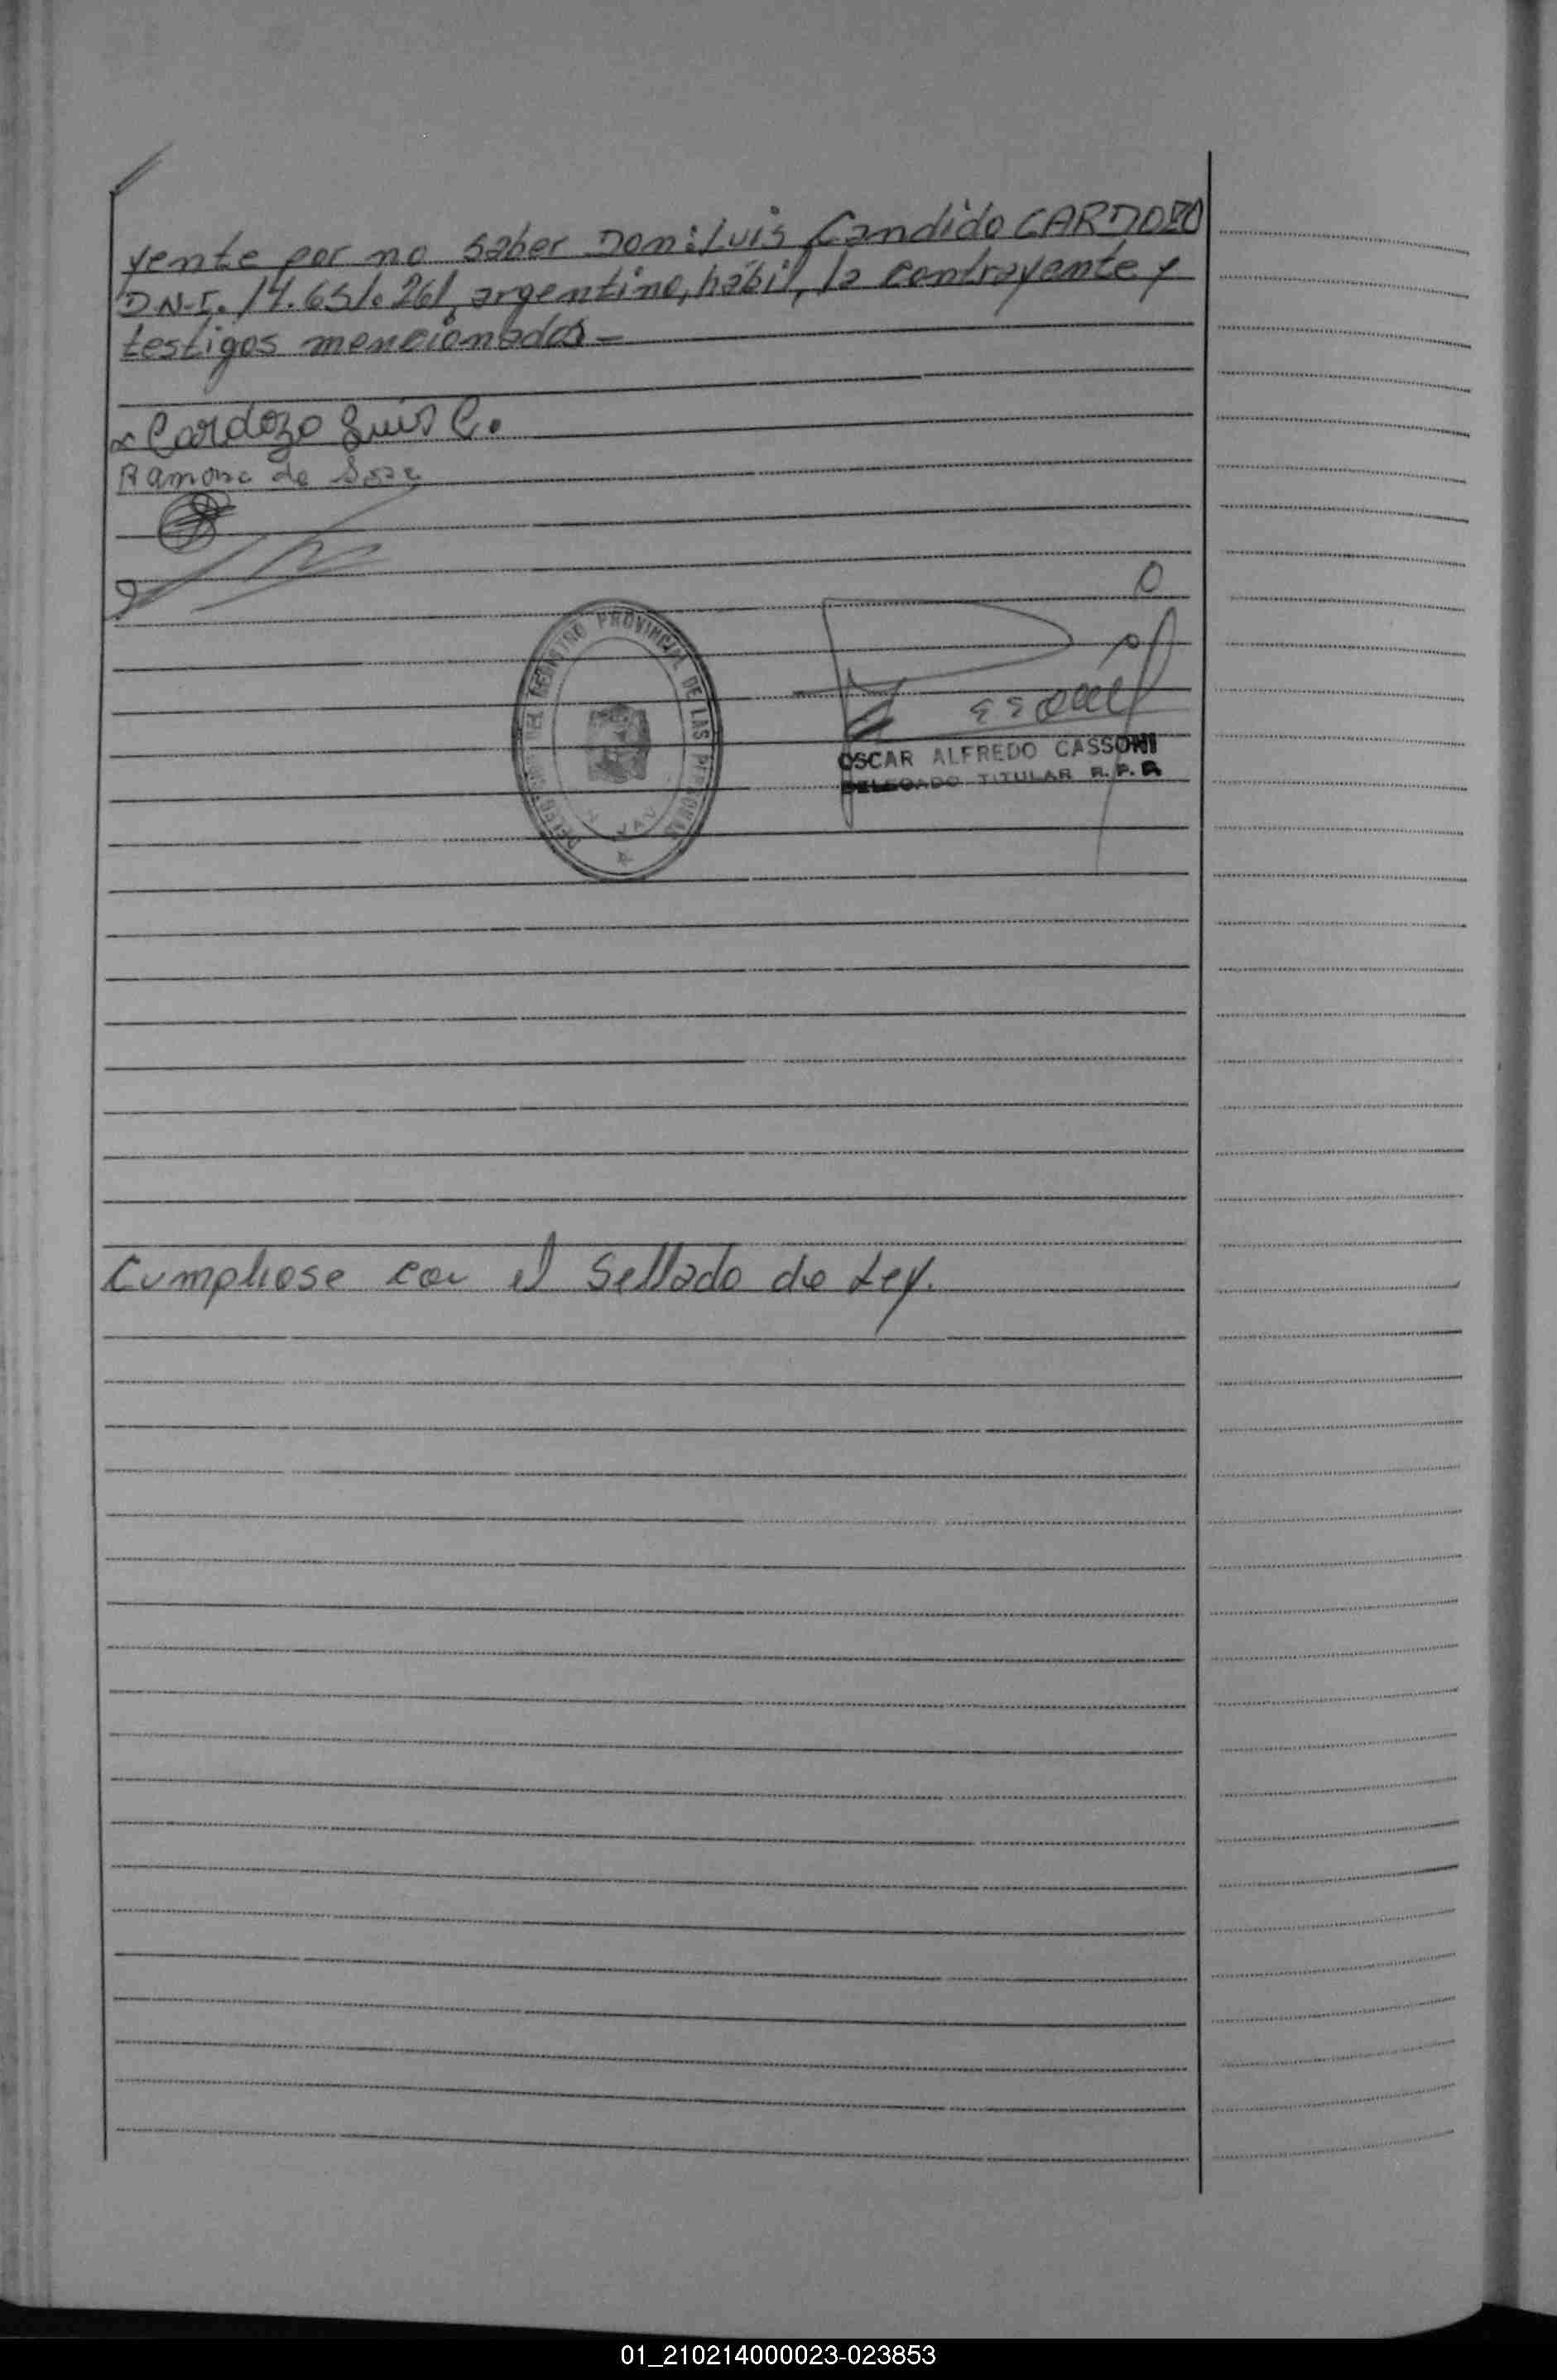 yente por no saber Don: Luis Candido CARDOZO
D.N.I. 14.651.261, argentino, hábil, la contrayente y
testigos mencionados -
Cardozo Luis C.
Ramona de Sosa
REGISTRO PROVINCIAL DE LAS PERSONAS
OSCAR ALFREDO CASSONI
DELEGADO TITULAR R. P. P.
Cumpliose con el Sellado de Ley.
01_210214000023-023853